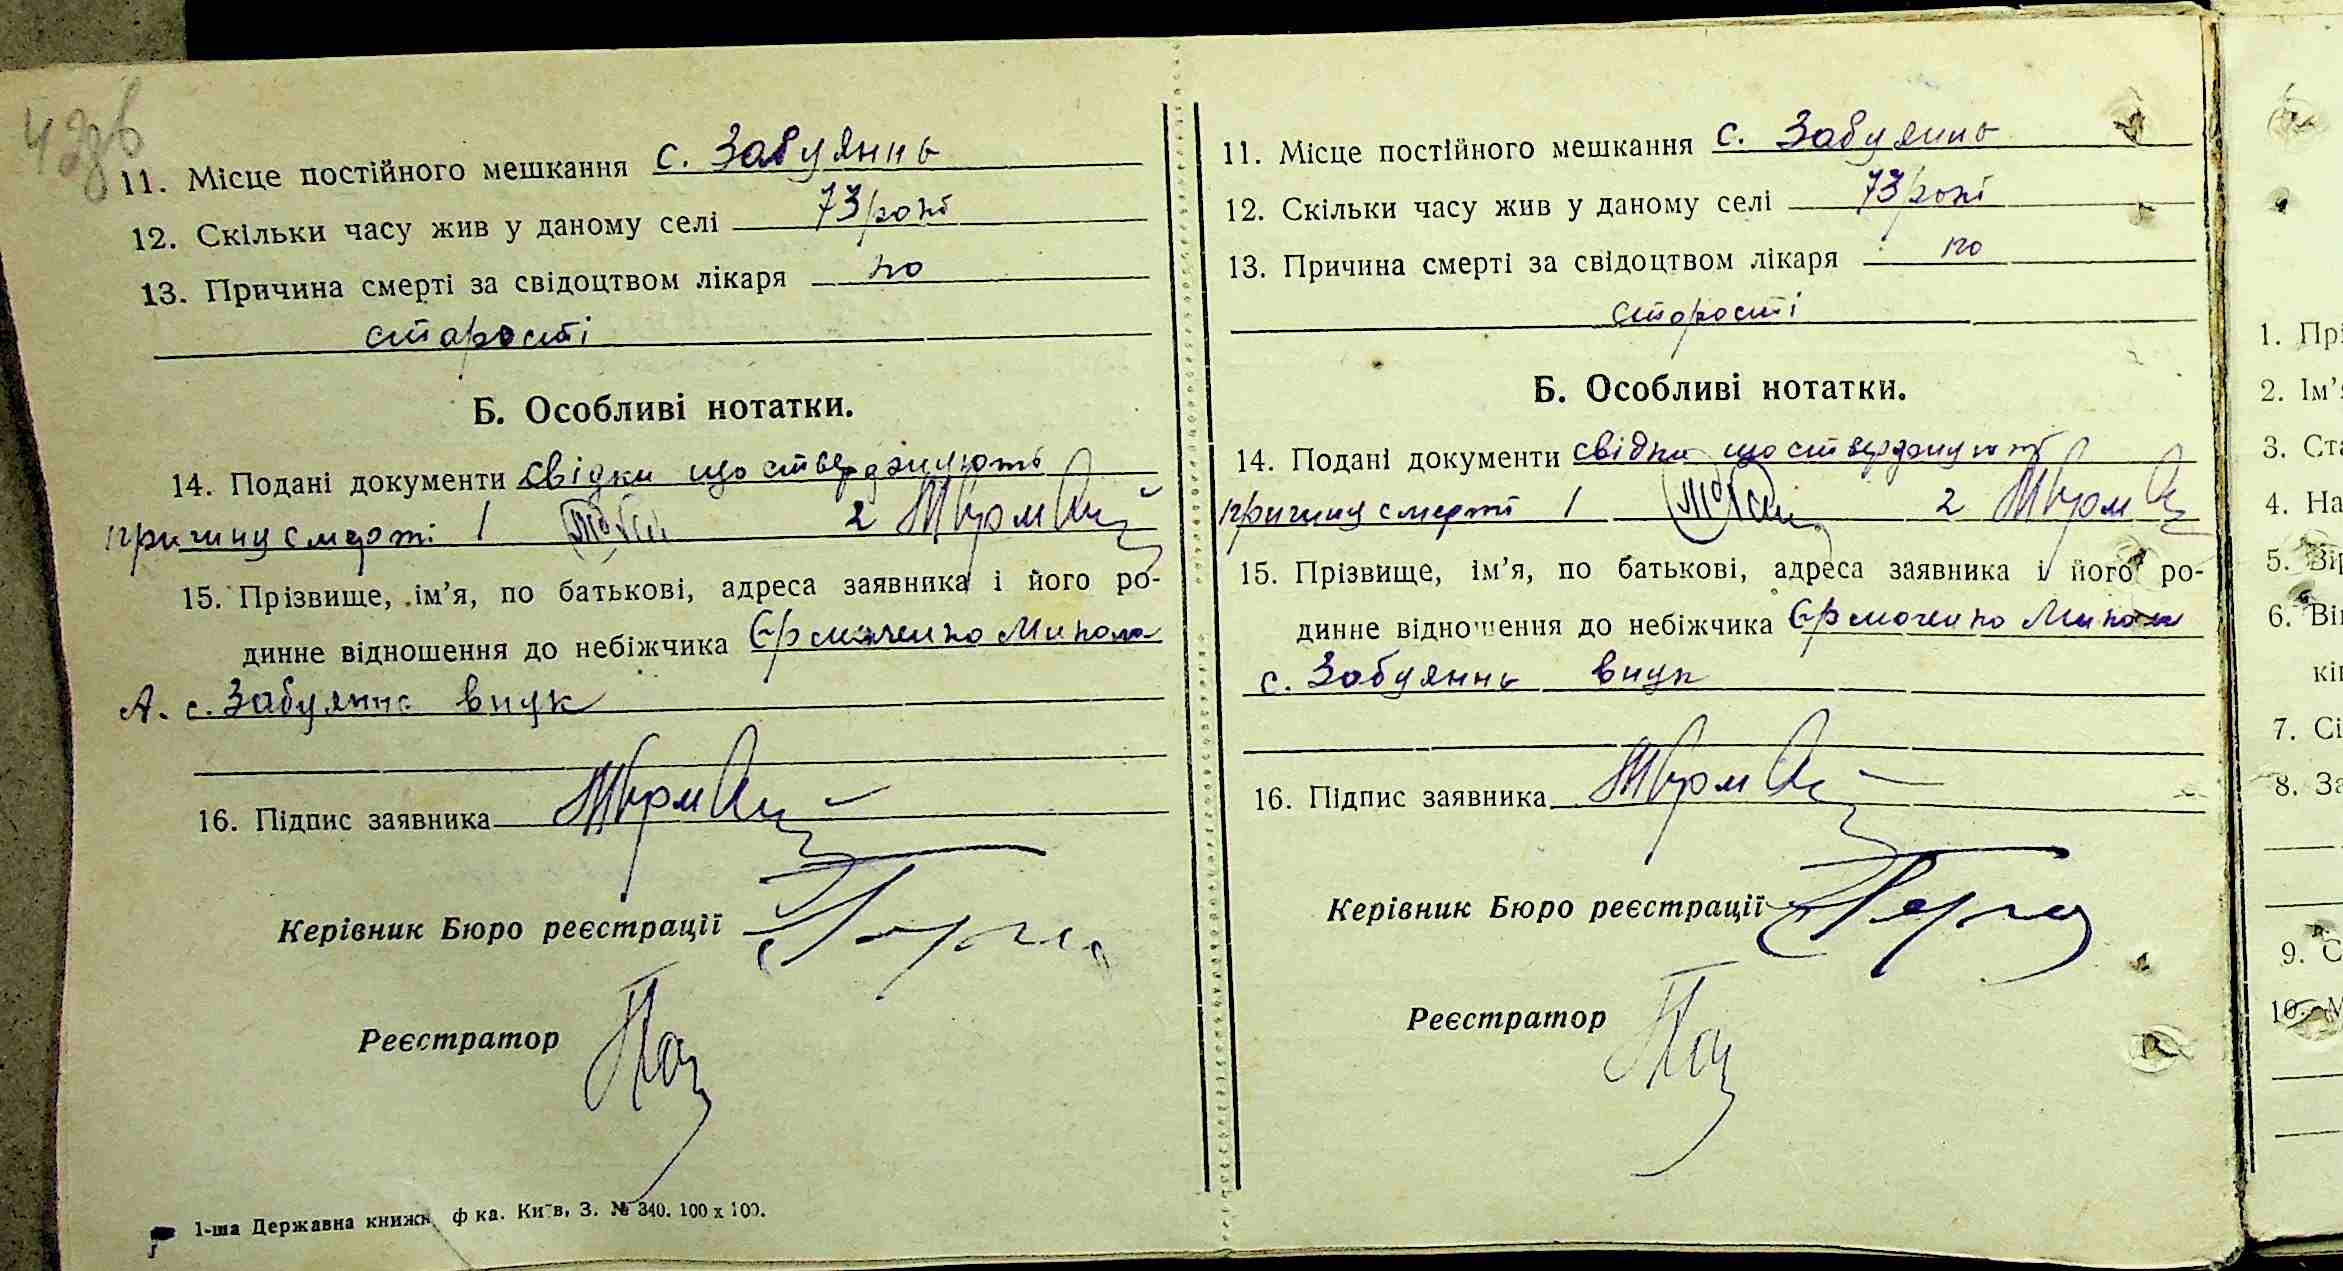 42зв
11. Місце постійного мешкання с. Забуяннь
12. Скільки часу жив у даному селі 73 роки
13. Причина смерті за свідоцтвом лікаря по
старості
Б. Особливі нотатки.
14. Подані документи свідки що стверджують
причину смерті 1 2
15. Прізвище, ім'я, по батькові, адреса заявника і його ро-
динне відношення до небіжчика Єрмоченко Микола
А. с. Забуяннь внук
16. Підпис заявника
Керівник Бюро реєстрації
Реєстратор
1-ша Державна книжн. ф-ка. Київ, З. № 340. 100 х 100.
11. Місце постійного мешкання с. Забуяннь
12. Скільки часу жив у даному селі 73 роки
13. Причина смерті за свідоцтвом лікаря по
старості
Б. Особливі нотатки.
14. Подані документи свідки що стверджують
причину смерті 1 2
15. Прізвище, ім'я, по батькові, адреса заявника і його ро-
динне відношення до небіжчика Єрмоченко Микола
с. Забуяннь внук
16. Підпис заявника
Керівник Бюро реєстрації
Реєстратор
1. Прі
2. Ім'я
3. Ста
4. На
5. Вір
6. Він
кін
7. Сі
8. За
9. С
10. М